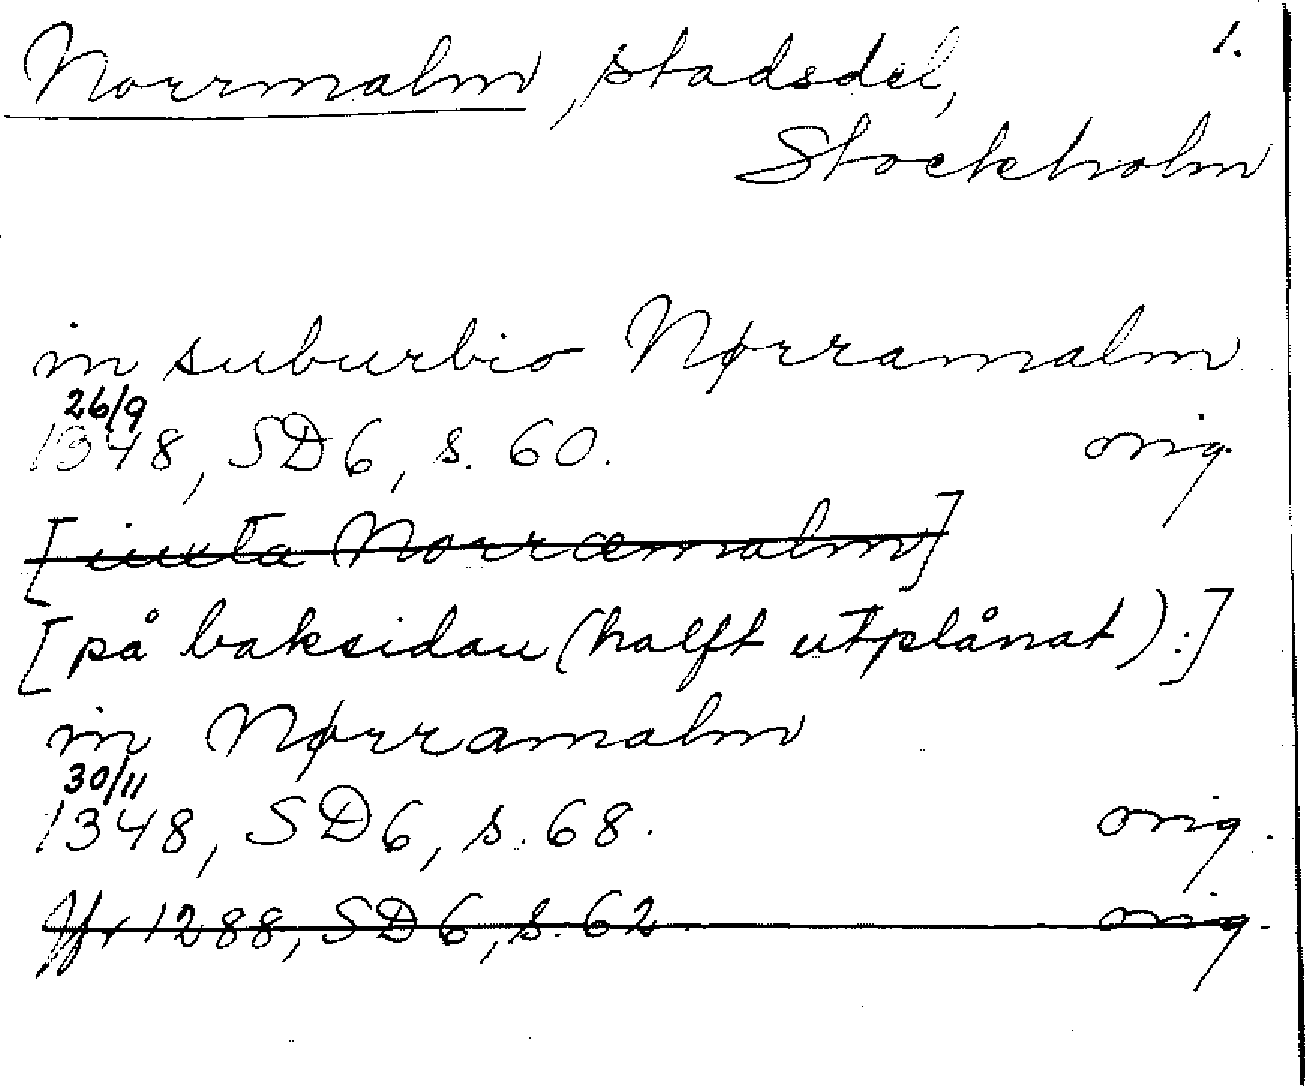 Norrmalm, stadsdel, 1.
Stockholm
in suburbio Nørramalm
26/9
1348, SD 6, s. 60. orig.
[iuxta Norræmalm]
[på baksidan (halft utplånat):]
in Nørramalm
30/11
1348, SD 6, s. 68. orig.
Jfr 1288, SD 6, s. 62. orig.